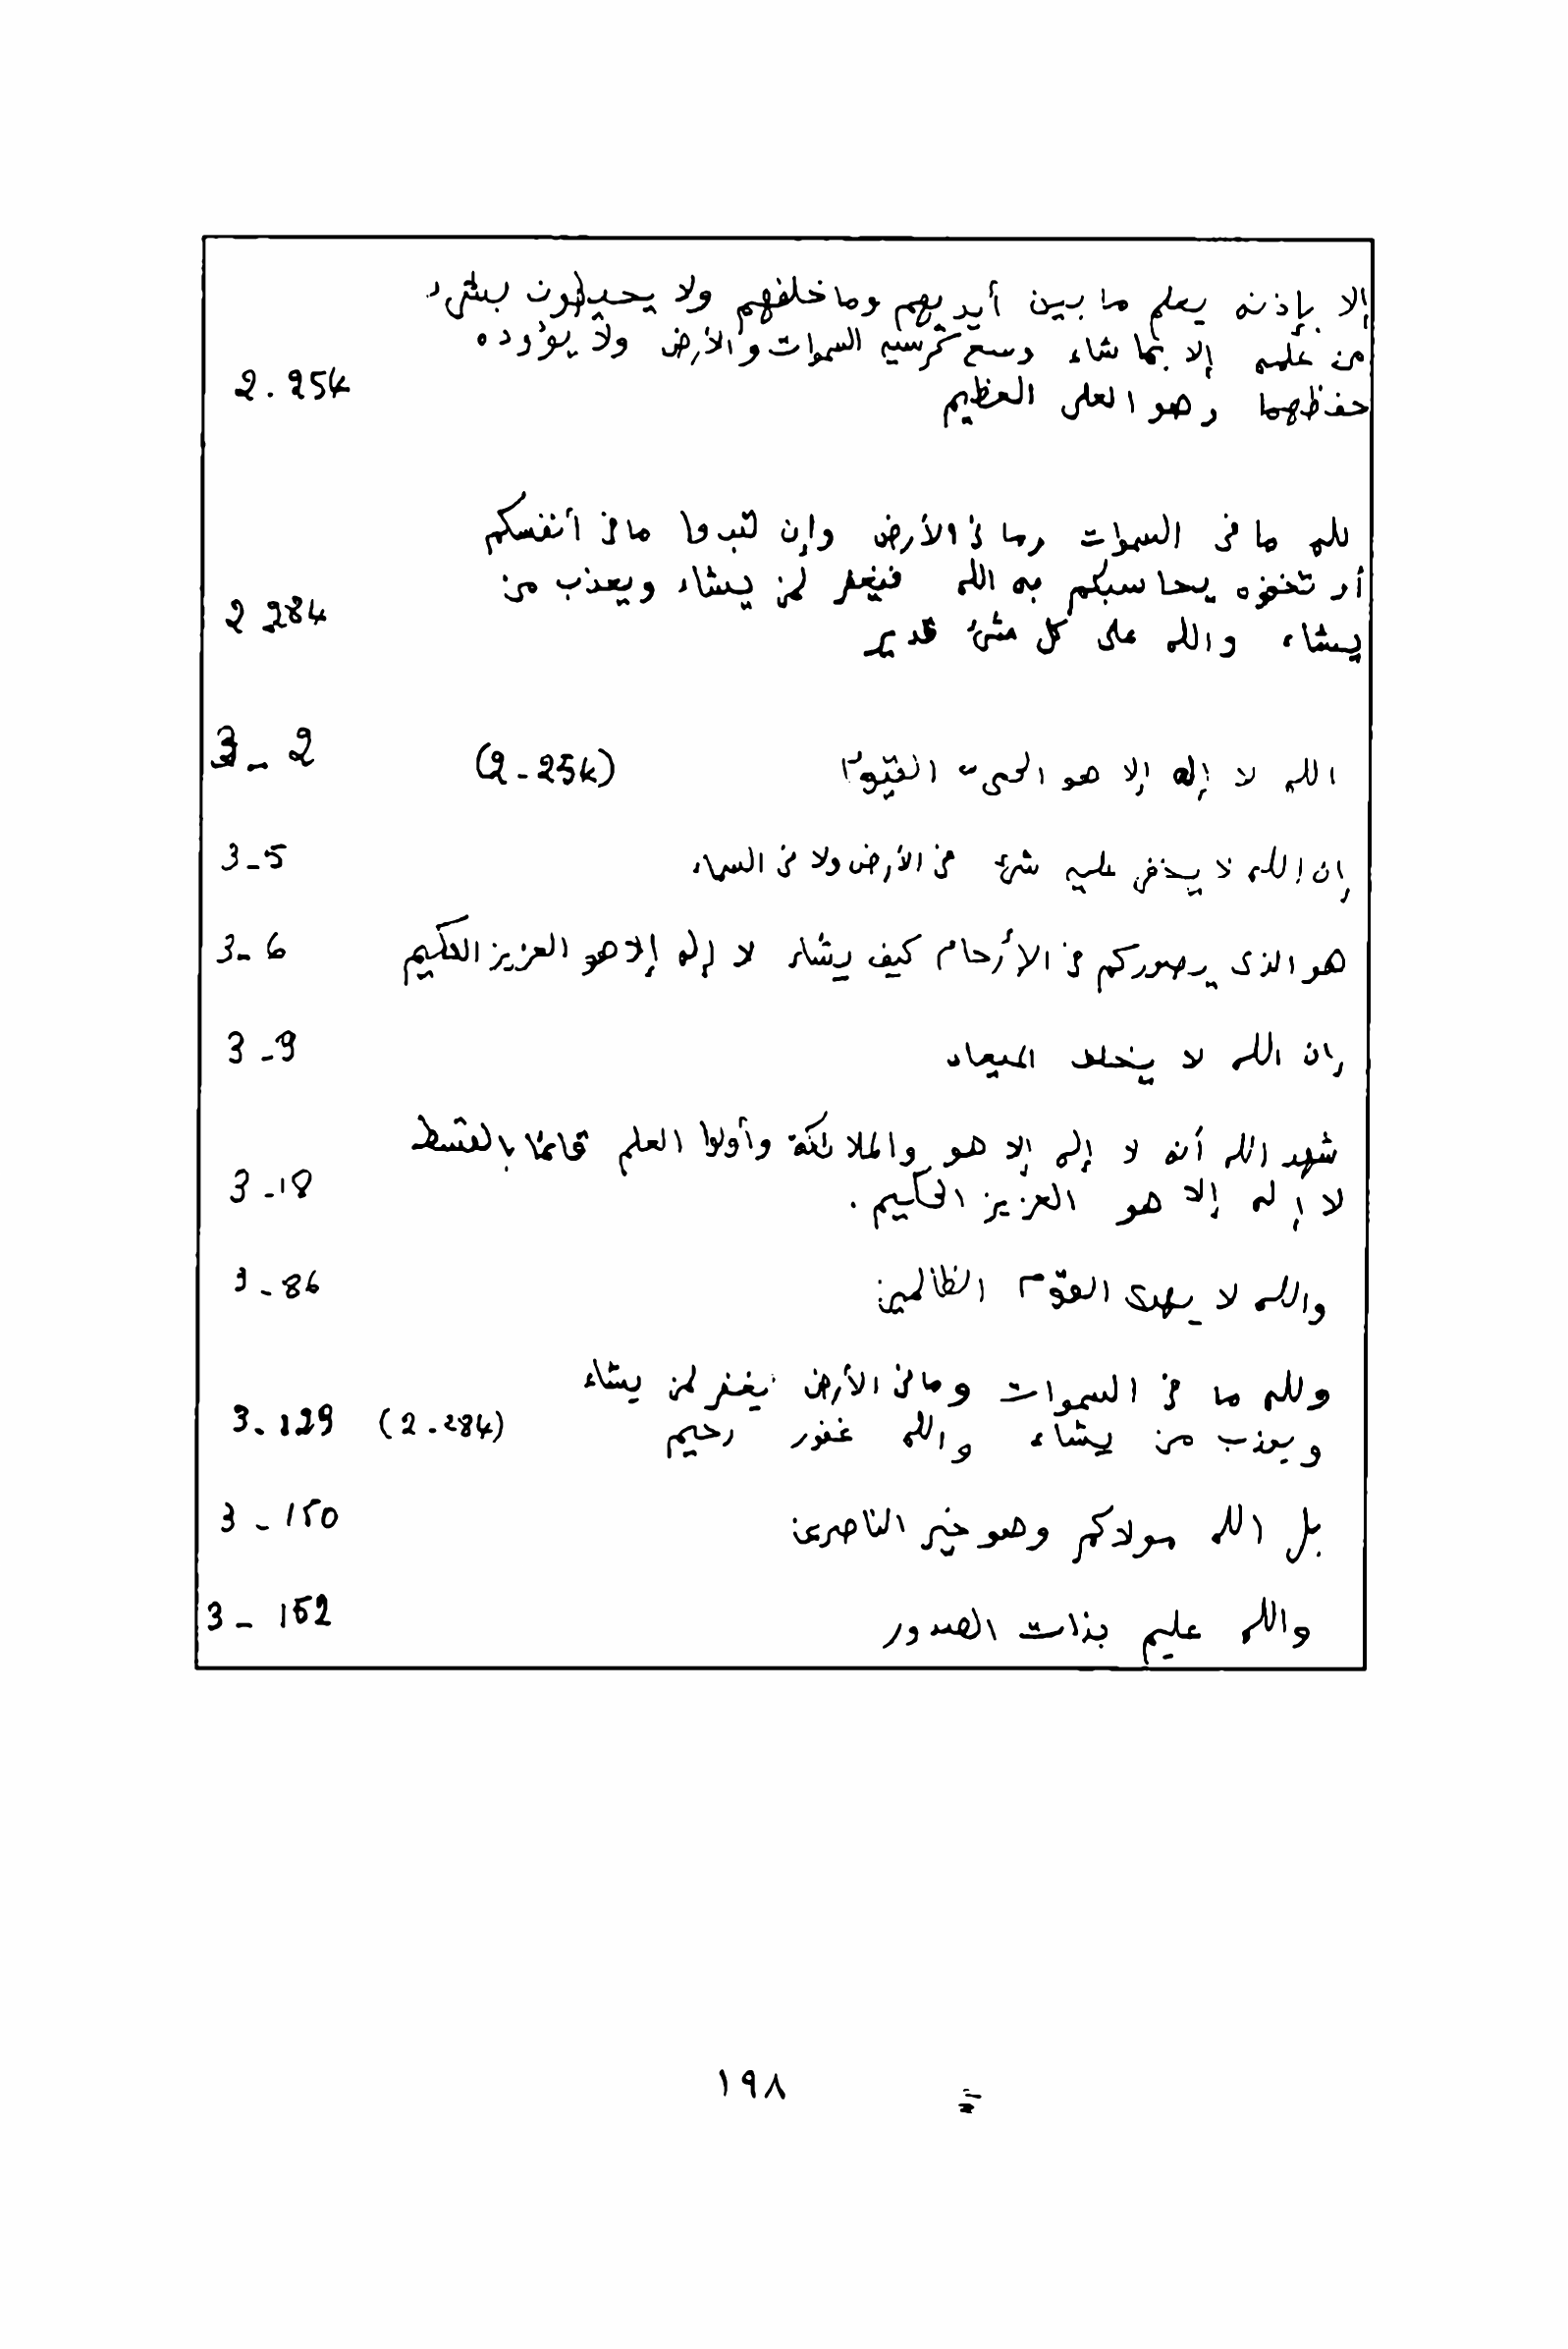 إلا بإذنه يعلم ما بين أيديهم وما خلفهم ولا يحيطون بشىء
من علمه إلا بما شاء وسع كرسيه السموات والأرض ولا يؤوده
حفظهما وهو العلى العظيم 2.254
لله ما فى السموات وما فى الأرض وإن تبدوا ما فى أنفسكم
أو تخفوه يحاسبكم به الله فيغفر لمن يشاء ويعذب من
يشاء والله على كل شئ قدير 2 284
الله لا إله إلا هو الحى القيّوم (2-254) 3-2
إن الله لا يخفى عليه شئ فى الأرض ولا فى السماء 3-5
هو الذى يصوركم فى الأرحام كيف يشاء لا إله إلا هو العزيز الحكيم 3-6
إن الله لا يخلف الميعاد 3-9
شهد الله أنه لا إله إلا هو والملائكة وأولوا العلم قائمًا بالقسط
لا إله إلا هو العزيز الحكيم. 3-18
والله لا يهدى القوّم الظالمين 3-86
ولله ما فى السموات وما فى الأرض يغفر لمن يشاء
ويعذب من يشاء والله غفور رحيم (2-284) 3.129
بل الله مولاكم وهو خير الناصرين 3-150
والله عليم بذات الصدور 3-152
١٩٨